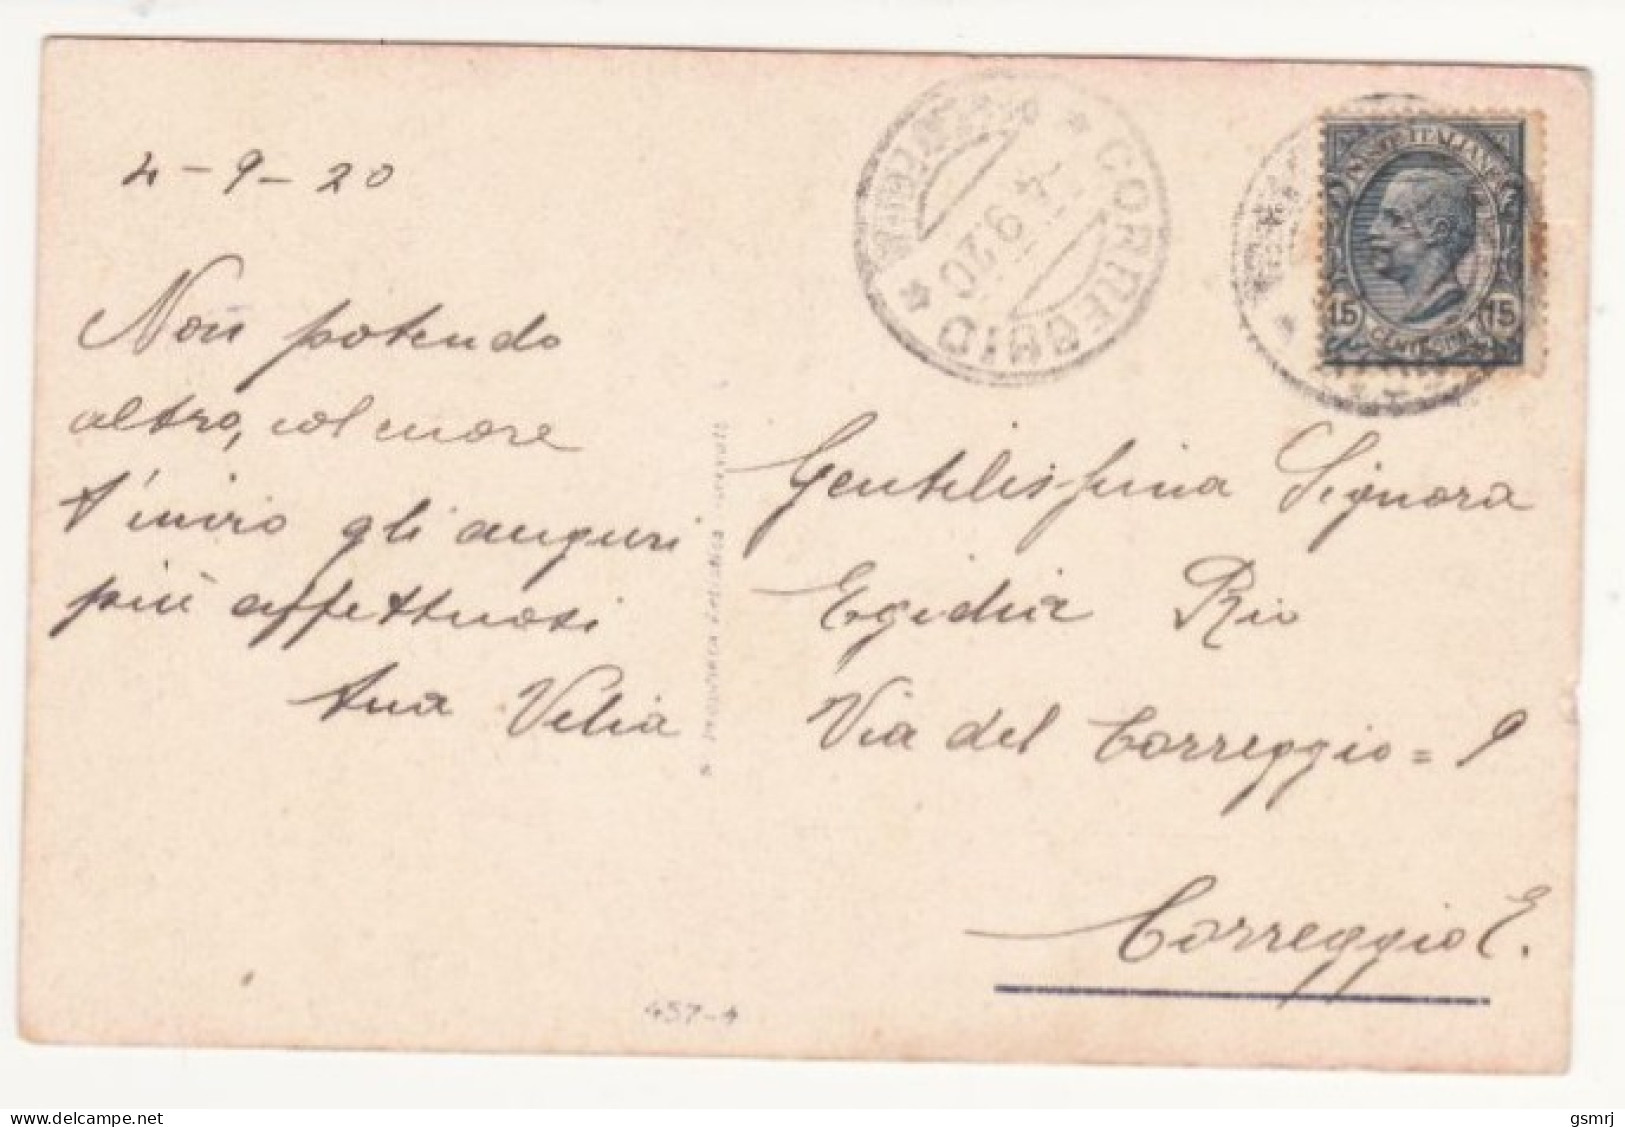 4-9-20
Non potendo
altro, col cuore
t'invio gli auguri
più affettuosi
tua Velia
CORREGGIO
4 9 20
POSTE ITALIANE
15 CENTESIMI 15
Gentilissima Signora
Egidia Rio
Via del Correggio = 9
Correggio E.
457-1
delcampe.net
gsmrj